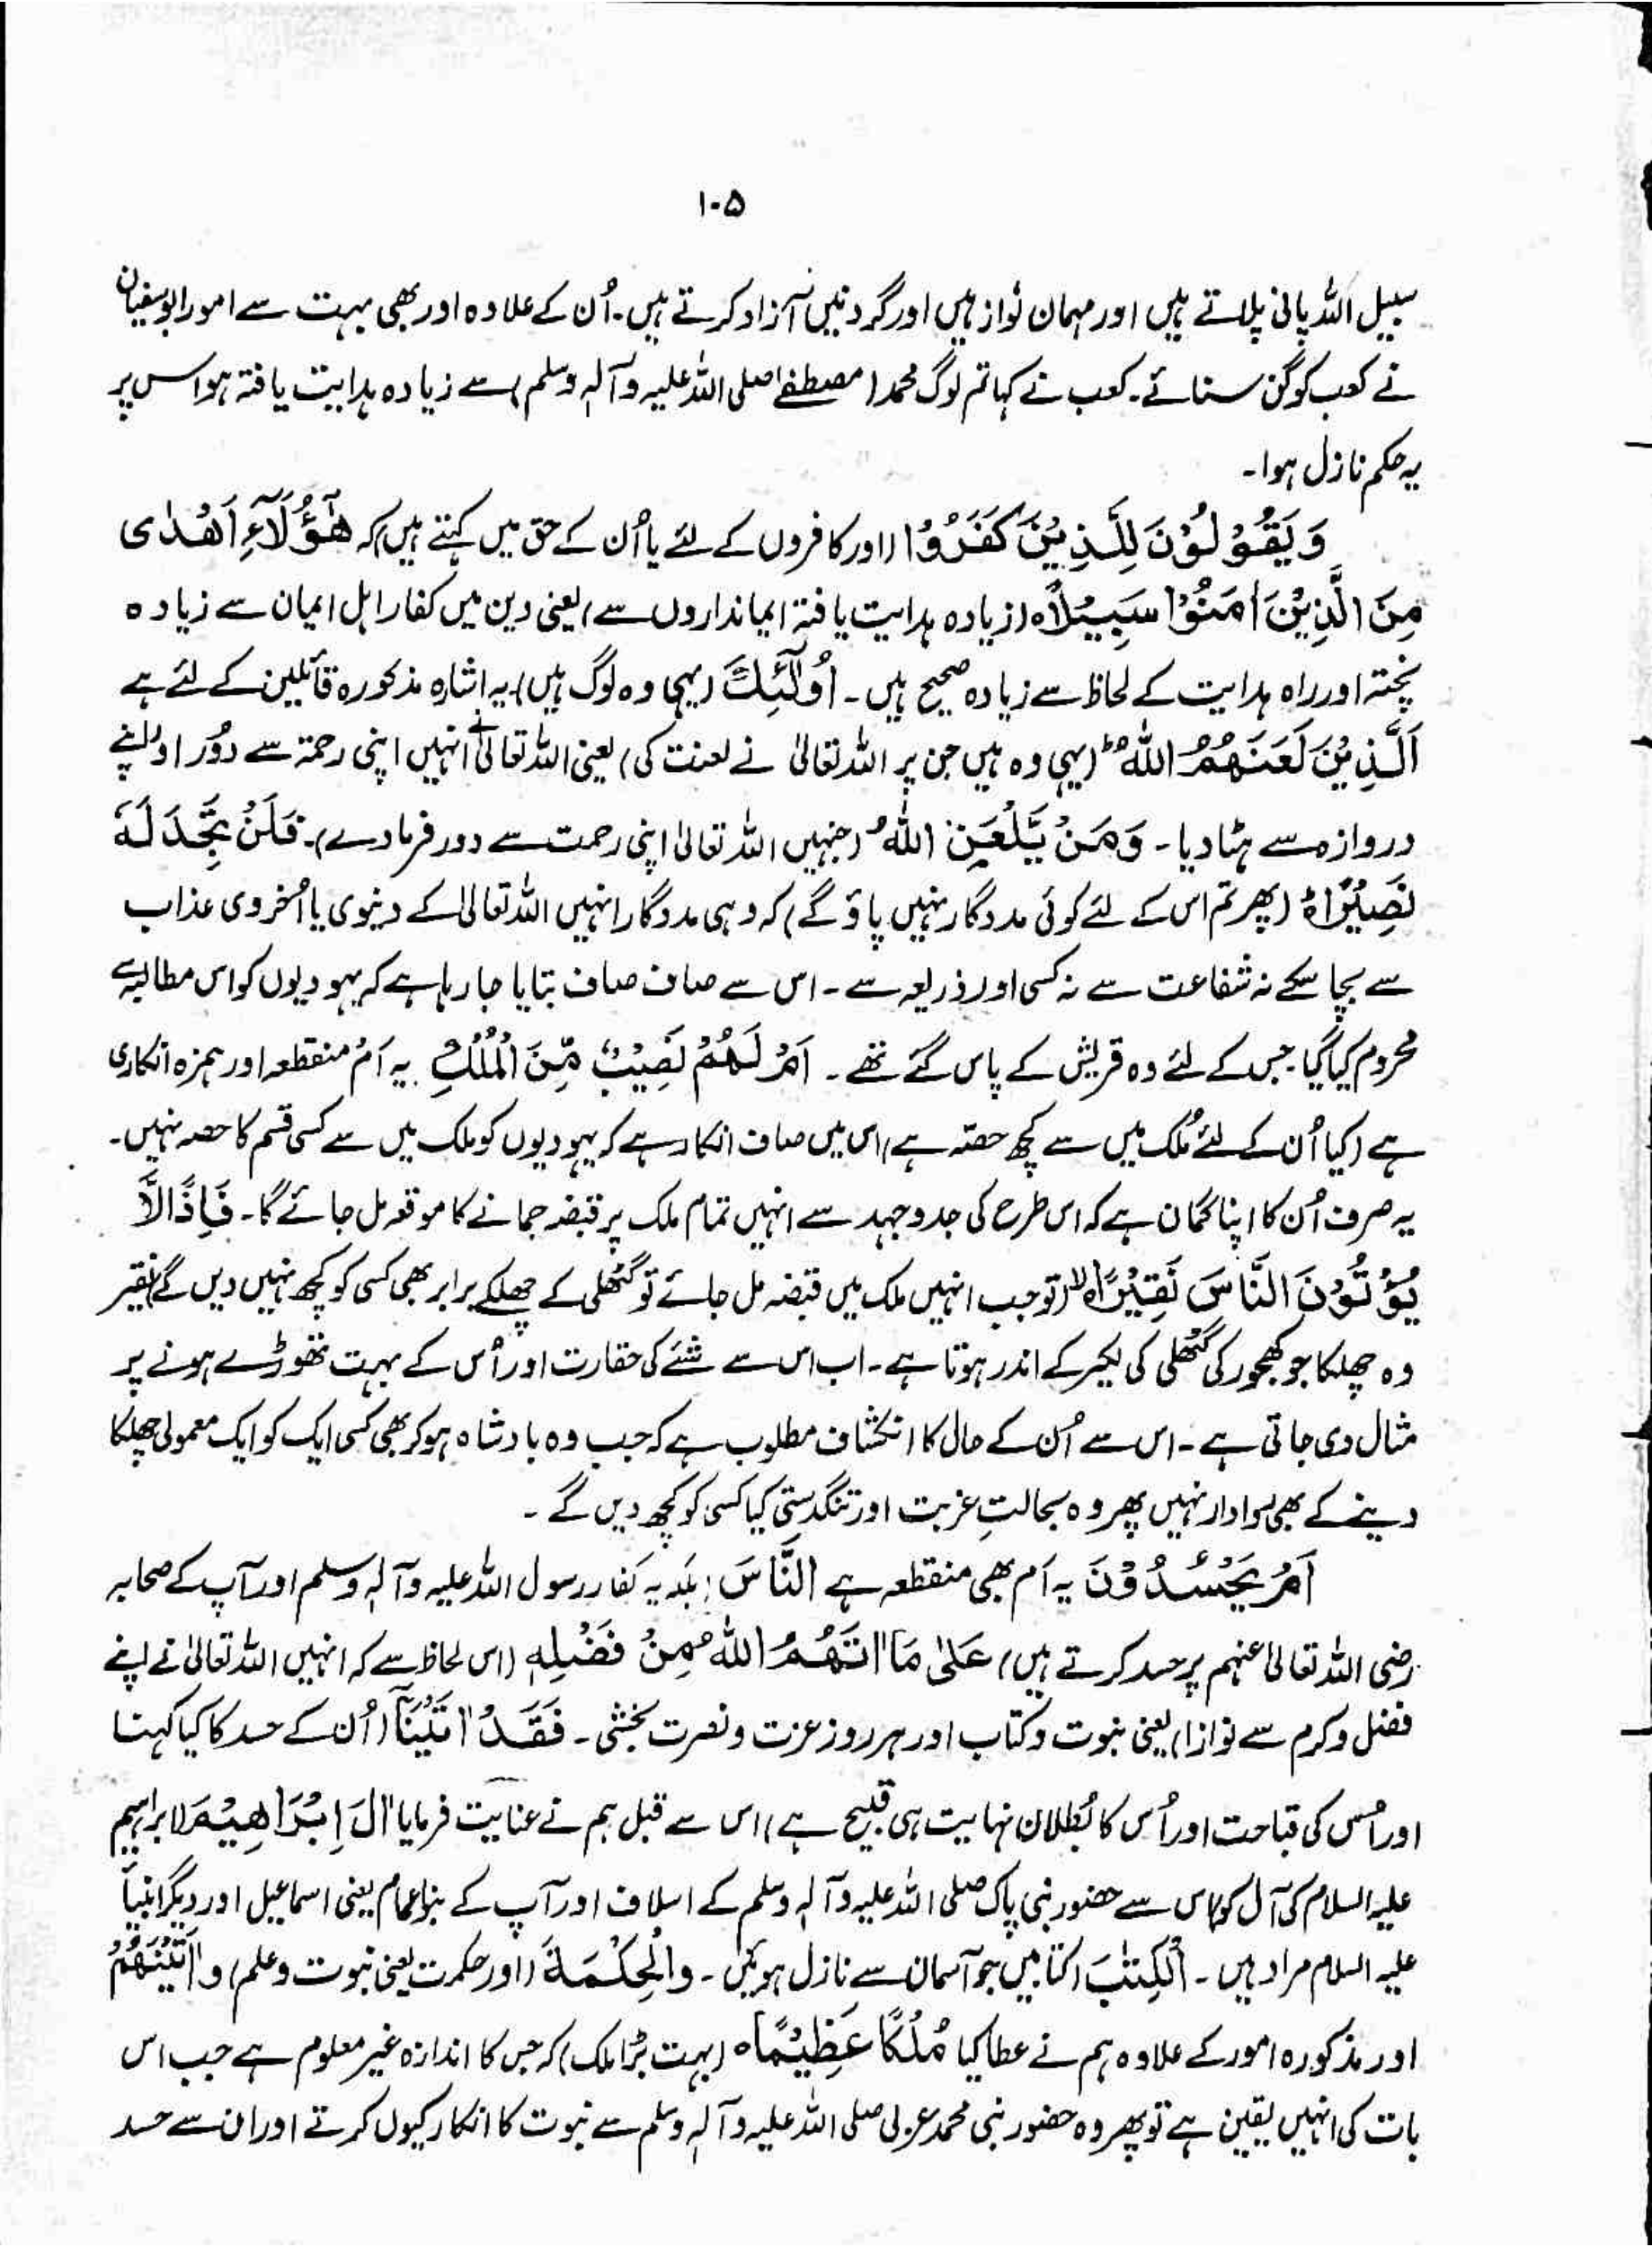 ۱۰۵
سبیل اللہ پانی پلاتے ہیں اور مہمان نواز ہیں اور گردنیں آزاد کرتے ہیں۔ اُن کے علاوہ اور بھی بہت سے امور ابوسفیان
نے کعب کو گن سنائے۔ کعب نے کہا تم لوگ محمد (مصطفےٰ صلی اللہ علیہ وآلہٖ وسلم) سے زیادہ ہدایت یافتہ ہو اس پر
یہ حکم نازل ہوا۔
وَیَقُوْلُوْنَ لِلَّذِیْنَ کَفَرُوْا (اور کافروں کے لئے یا اُن کے حق میں کہتے ہیں) کہ ھٰٓؤُلَآءِ اَھْدٰی
مِنَ الَّذِیْنَ اٰمَنُوْا سَبِیْلًا ہ (زیادہ ہدایت یافتہ ایمانداروں سے) یعنی دین میں کفار اہل ایمان سے زیادہ
پختہ اور راہ ہدایت کے لحاظ سے زیادہ صحیح ہیں۔ اُولٰٓئِکَ (یہی وہ لوگ ہیں) یہ اشارہ مذکورہ قائلین کے لئے ہے
اَلَّذِیْنَ لَعَنَھُمُ اللّٰہُ ط (یہی وہ ہیں جن پر اللہ تعالیٰ نے لعنت کی) یعنی اللہ تعالیٰ نے انہیں اپنی رحمۃ سے دُور اور اپنے
دروازہ سے ہٹا دیا۔ وَمَنْ یَّلْعَنِ اللّٰہُ (جنہیں اللہ تعالیٰ اپنی رحمت سے دور فرما دے)۔ فَلَنْ تَجِدَ لَہٗ
نَصِیْرًا ہ (پھر تم اس کے لئے کوئی مددگار نہیں پاؤ گے) کہ وہی مددگار انہیں اللہ تعالیٰ کے دینوی یا اُخروی عذاب
سے بچا سکے نہ شفاعت سے نہ کسی اور ذریعہ سے۔ اس سے صاف صاف بتایا جا رہا ہے کہ یہودیوں کو اس مطالبہ سے
محروم کیا گیا۔ جس کے لئے وہ قریش کے پاس گئے تھے۔ اَمْ لَھُمْ نَصِیْبٌ مِّنَ الْمُلْکِ یہ اَمْ منقطعہ اور ہمزہ انکاری
ہے (کیا اُن کے لئے مُلک میں سے کچھ حصّہ ہے) اس میں صاف انکار ہے کہ یہودیوں کو ملک میں سے کسی قسم کا حصہ نہیں۔
یہ صرف اُن کا اپنا گمان ہے کہ اس طرح کی جدوجہد سے انہیں تمام ملک پر قبضہ جمانے کا موقعہ مل جائے گا۔ فَاِذًا لَّا
یُؤْتُوْنَ النَّاسَ نَقِیْرًا ہ لا (تو جب انہیں ملک میں قبضہ مل جائے تو گٹھلی کے چھلکے برابر بھی کسی کو کچھ نہیں دیں گے) نقیر
وہ چھلکا جو کھجور کی گٹھلی کی لکیر کے اندر ہوتا ہے۔ اب اس سے شئے کی حقارت اور اُس کے بہت تھوڑے ہونے پر
مثال دی جاتی ہے۔ اس سے اُن کے حال کا انکشاف مطلوب ہے کہ جب وہ بادشاہ ہو کر بھی کسی ایک کو ایک معمولی چھلکا
دینے کے بھی روادار نہیں پھر وہ بحالتِ غربت اور تنگدستی کیا کسی کو کچھ دیں گے۔
اَمْ یَحْسُدُوْنَ یہ اَم بھی منقطعہ ہے النَّاسَ (بلکہ یہ کفار رسول اللہ علیہ وآلہٖ وسلم اور آپ کے صحابہ
رضی اللہ تعالیٰ عنہم پر حسد کرتے ہیں) عَلٰی مَا اٰتٰھُمُ اللّٰہُ مِنْ فَضْلِہٖ (اس لحاظ سے کہ انہیں اللہ تعالیٰ نے اپنے
فضل و کرم سے نوازا) یعنی نبوت و کتاب اور ہر روز عزت و نصرت بخشی۔ فَقَدْ اٰتَیْنَآ (اُن کے حسد کا کیا کہنا
اور اُس کی قباحت اور اُس کا بُطلان نہایت ہی قبیح ہے) اس سے قبل ہم نے عنایت فرمایا اٰلَ اِبْرَاھِیْمَ (ابراہیم
علیہ السلام کی آل کو) اس سے حضور نبی پاک صلی اللہ علیہ وآلہٖ وسلم کے اسلاف اور آپ کے بنو اعمام یعنی اسماعیل اور دیگر انبیاً
علیہ السلام مراد ہیں۔ اَلْکِتٰبَ (کتابیں جو آسمان سے نازل ہوئیں۔ وَالْحِکْمَۃَ (اور حکمت یعنی نبوت و علم) وَاٰتَیْنٰھُمْ
اور مذکورہ امور کے علاوہ ہم نے عطا کیا مُلْکًا عَظِیْمًا ہ (بہت بڑا ملک) کہ جس کا اندازہ غیر معلوم ہے جب اس
بات کی انہیں یقین ہے تو پھر وہ حضور نبی محمد عربی صلی اللہ علیہ وآلہٖ وسلم سے نبوت کا انکار کیوں کرتے اور ان سے حسد